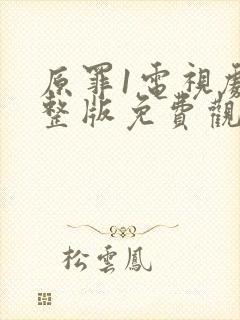 原罪1電視劇
整版免費觀
松雲鳳